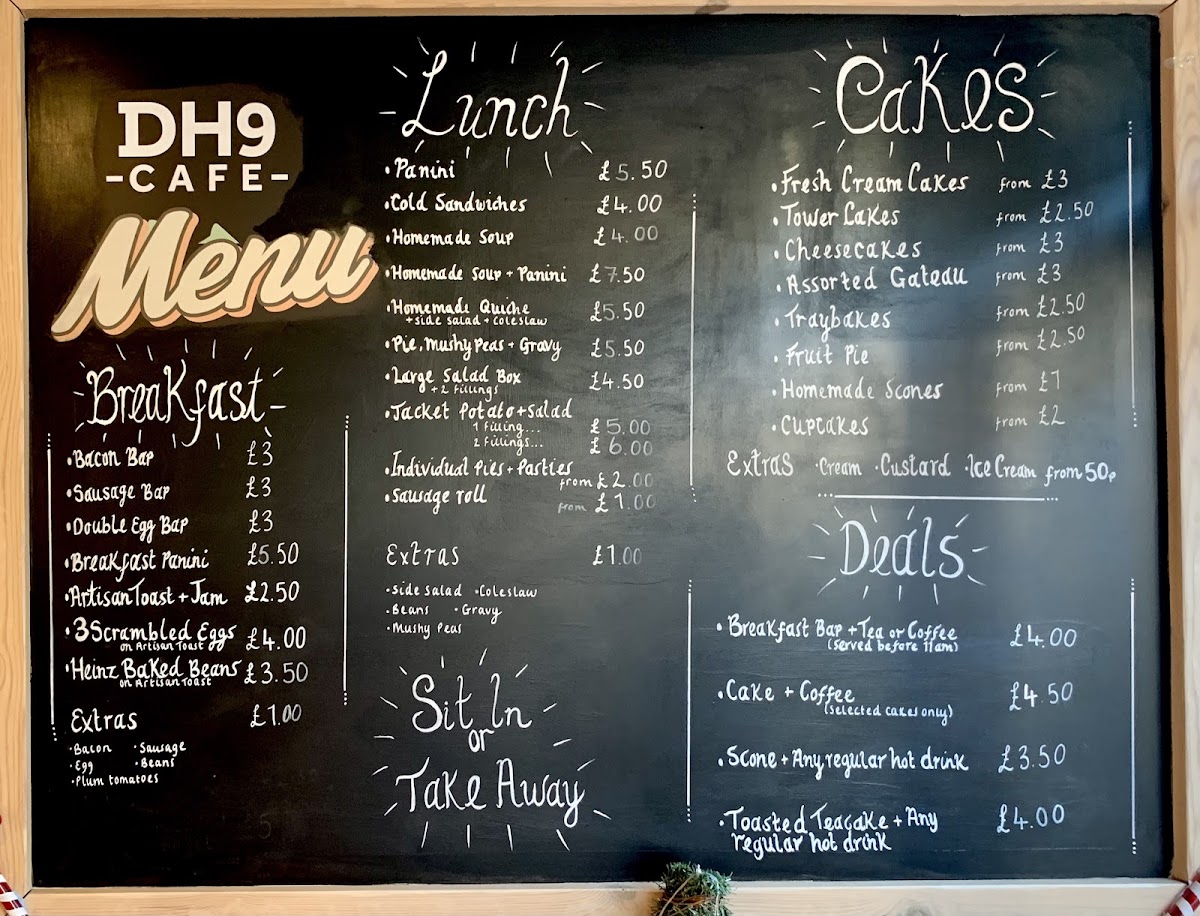 DH9
-CAFE-
Mènu
Breakfast
•Bacon Bap £3
•Sausage Bap £3
•Double Egg Bap £3
•Breakfast Panini £5.50
•Artisan Toast + Jam £2.50
•3 Scrambled Eggs £4.00
on Artisan Toast
•Heinz Baked Beans £3.50
on Artisan Toast
Extras £1.00
•Bacon •Sausage
•Egg •Beans
•Plum tomatoes
Lunch
•Panini £5.50
•Cold Sandwiches £4.00
•Homemade Soup £4.00
•Homemade Soup + Panini £7.50
•Homemade Quiche £5.50
+ side salad + coleslaw
•Pie, Mushy Peas + Gravy £5.50
•Large Salad Box £4.50
+ 2 fillings
•Jacket Potato + Salad
1 filling... £5.00
2 fillings... £6.00
•Individual Pies + Pasties
from £2.00
•Sausage roll from £1.00
Extras £1.00
•Side Salad •Coleslaw
•Beans •Gravy
•Mushy Peas
Sit In
or
Take Away
Cakes
•Fresh Cream Cakes from £3
•Tower Cakes from £2.50
•Cheesecakes from £3
•Assorted Gateau from £3
•Traybakes from £2.50
•Fruit Pie from £2.50
•Homemade Scones from £1
•Cupcakes from £2
Extras •Cream •Custard •Ice Cream from 50p
Deals
•Breakfast Bap + Tea or Coffee £4.00
(served before 11am)
•Cake + Coffee £4.50
(selected cakes only)
•Scone + Any regular hot drink £3.50
•Toasted Teacake + Any £4.00
regular hot drink